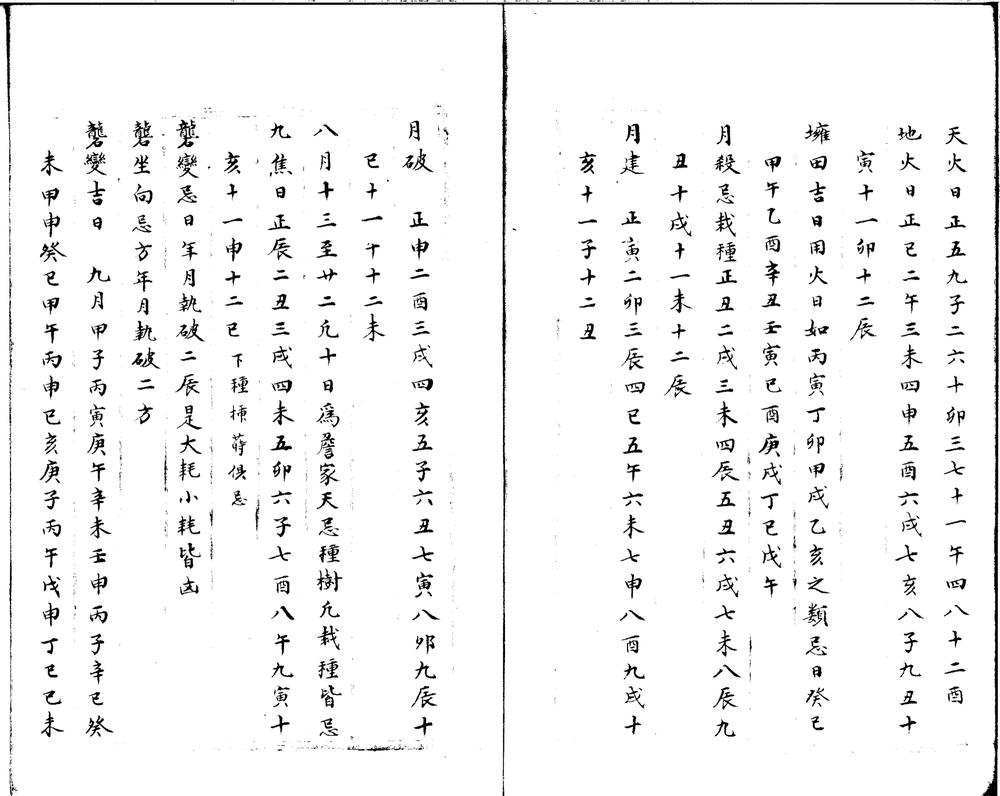 天火日正五九子二六十卯三七十一午四八十二酉
地火日正巳二午三未四申五酉六戌七亥八子九丑十
寅十一卯十二辰
壅田吉日用火日如丙寅丁卯甲戌乙亥之類忌日癸巳
甲午乙酉辛丑壬寅巳酉庚戌丁巳戊午
月殺忌栽種正丑二戌三未四辰五丑六戌七未八辰九
丑十戌十一未十二辰
月建 正寅二卯三辰四巳五午六未七申八酉九戌十
亥十一子十二丑
月破 正申二酉三戌四亥五子六丑七寅八卯九辰十
巳十一午十二未
八月十三至廿二凢十日為詹家天忌種樹凢栽種皆忌
九焦日正辰二丑三戌四未五卯六子七酉八午九寅十
亥十一申十二巳下種揷蒔俱忌
礱變忌日年月執破二辰是大耗小耗皆凶
礱坐向忌方年月執破二方
礱變吉日 九月甲子丙寅庚午辛未壬申丙子辛巳癸
未甲申癸巳甲午丙申巳亥庚子丙午戊申丁巳巳未